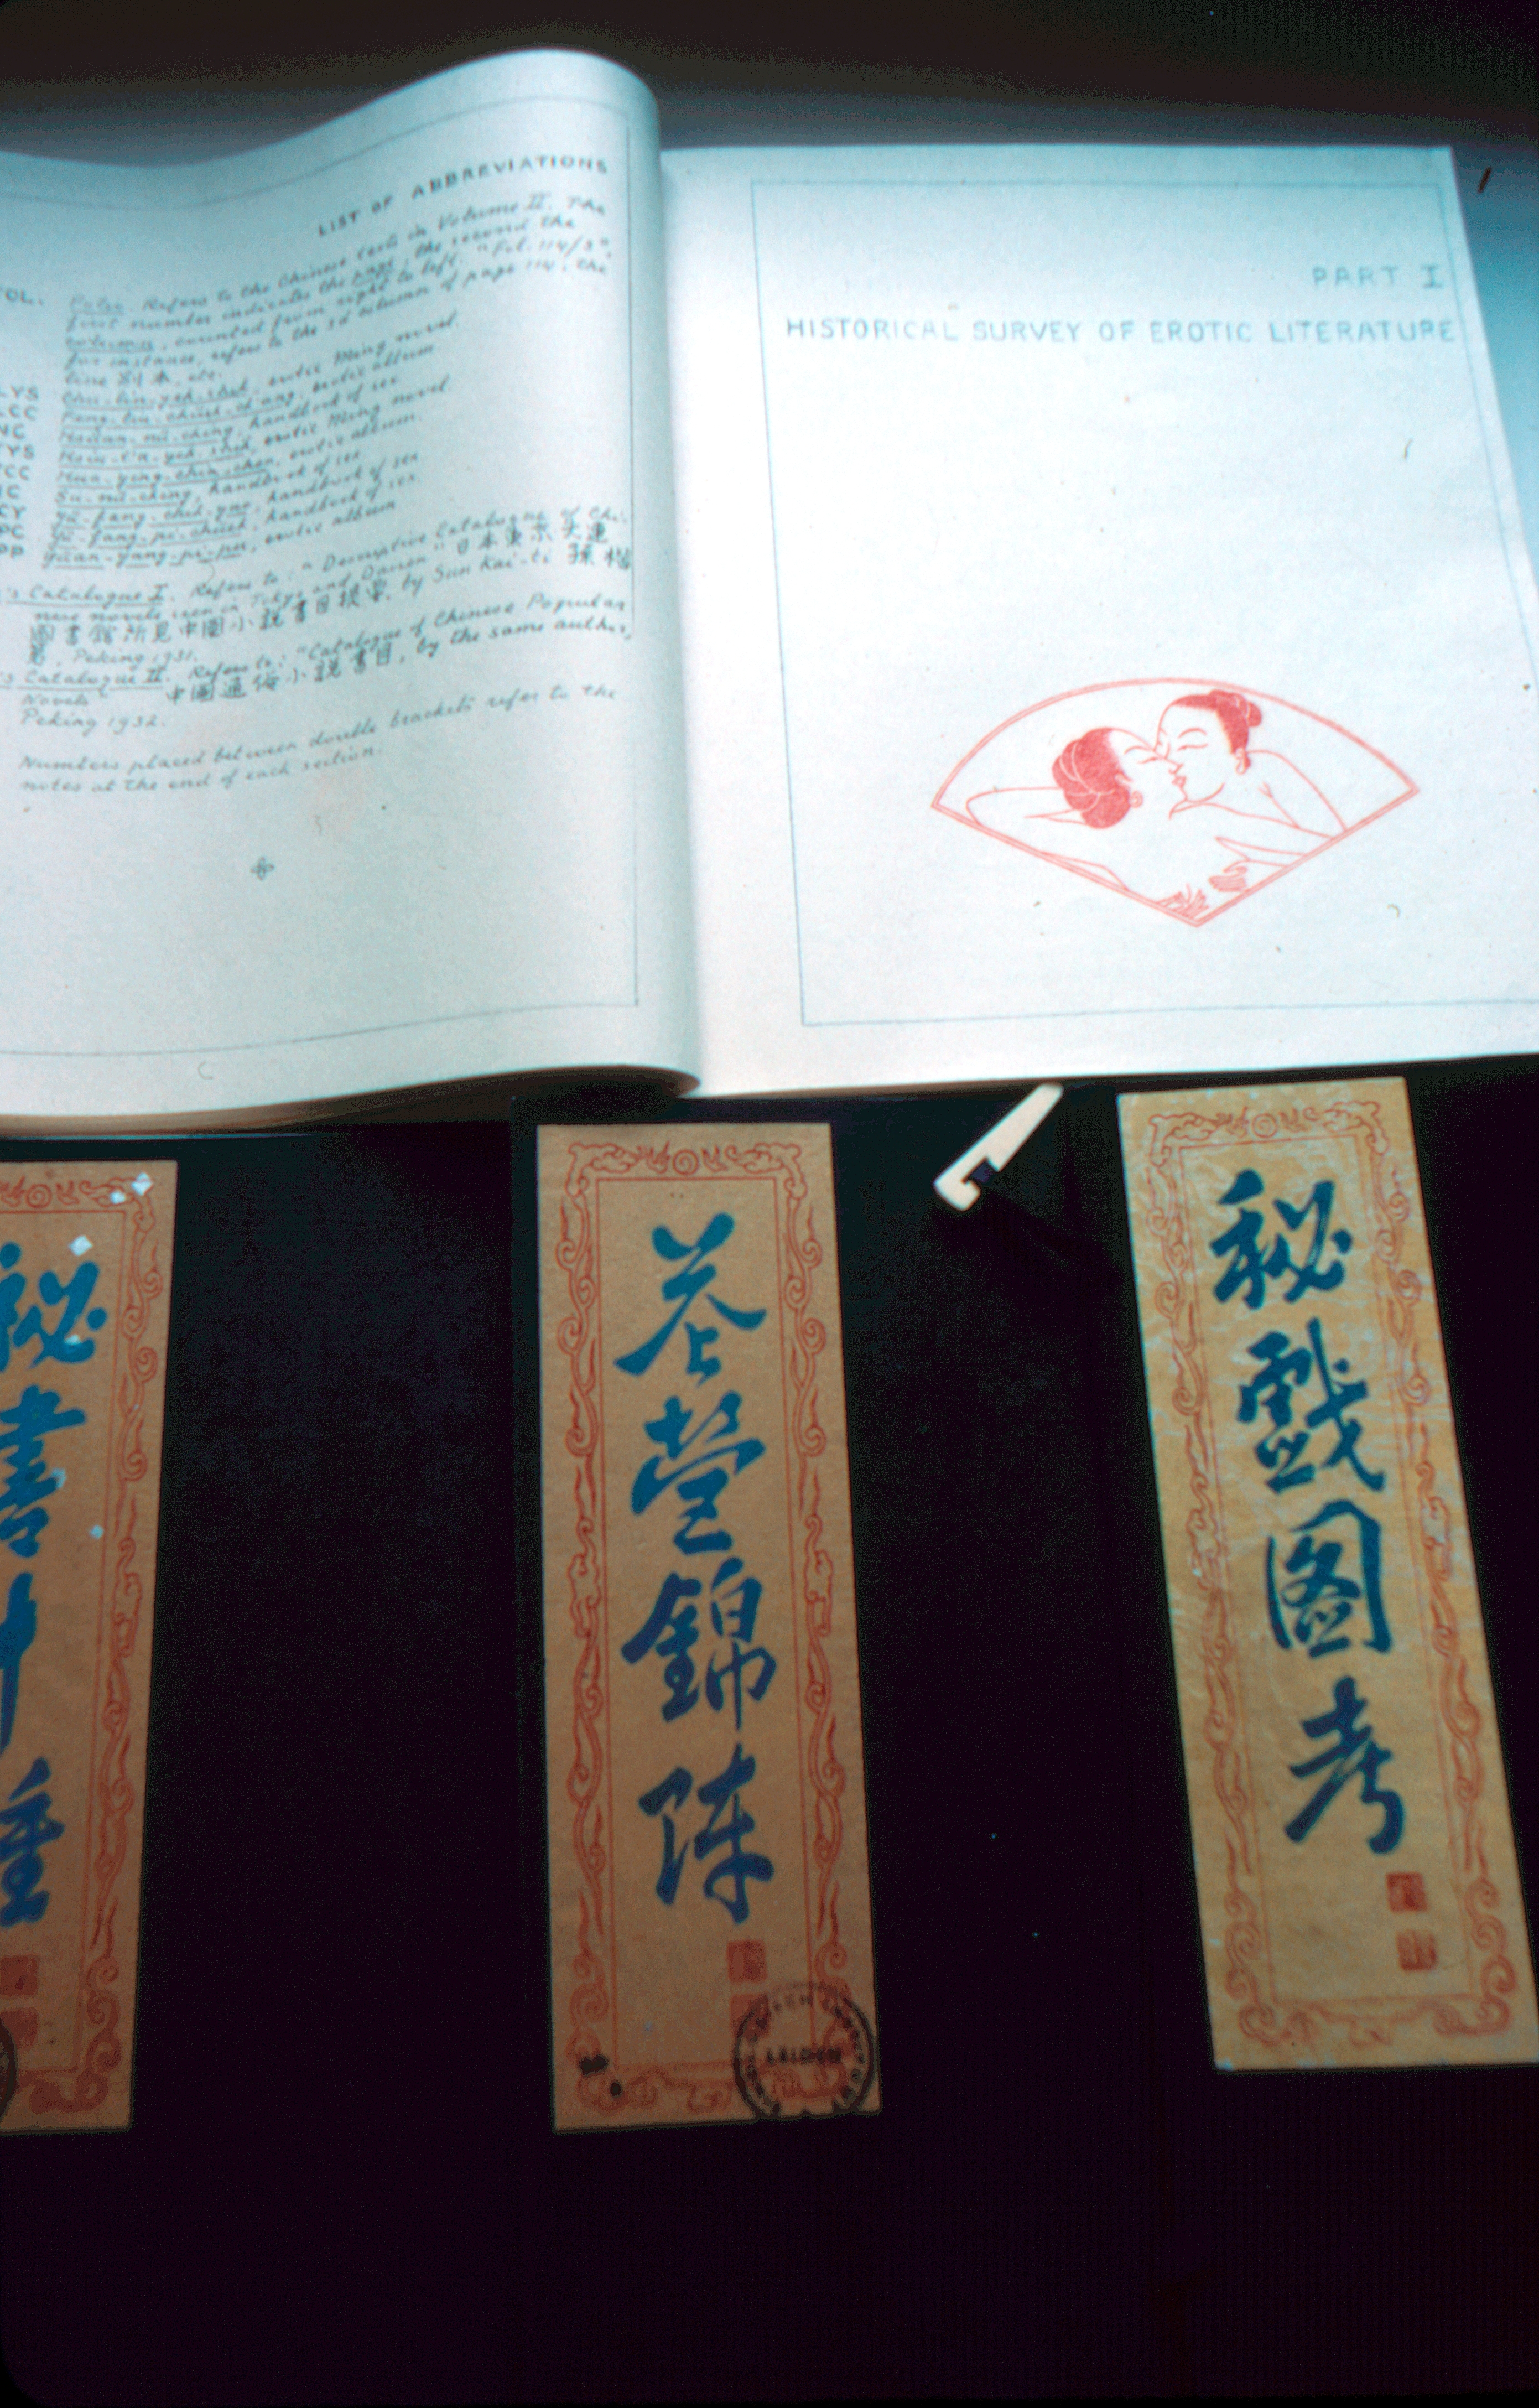 LIST OF ABBREVIATIONS
FOL. Folio. Refers to the Chinese texts in Volume II. The
first number indicates the page, the second the
column, counted from right to left. "Fol. 114/3",
for instance, refers to the 3d column of page 114, the
line 別本, etc.
LYS Chu-lin-yeh-shih, erotic Ming novel.
LCC Feng-liu-chüeh-ch'ang, erotic album.
NC Hsüan-nü-ching, handbook of sex
TYS Hsiu-t'a-yeh-shih, erotic Ming novel
CC Hua-ying-chin-chen, erotic album.
C Su-nü-ching, handbook of sex
CY Yü-fang-chih-yao, handbook of sex
PC Yü-fang-pi-chüeh, handbook of sex.
PP Yüan-yang-pi-pu, erotic album
's Catalogue I. Refers to: "Descriptive Catalogue of Chi-
nese novels seen in Tokyo and Dairen" 日本東京大連
圖書館所見中國小説書目提要, by Sun Kai-ti 孫楷
第, Peking 1931.
's Catalogue II. Refers to: "Catalogue of Chinese Popular
Novels" 中國通俗小説書目, by the same author,
Peking 1932.
Numbers placed between double brackets refer to the
notes at the end of each section.
PART I
HISTORICAL SURVEY OF EROTIC LITERATURE
秘戲圖考
花營錦陣
LEIDEN
秘書十種